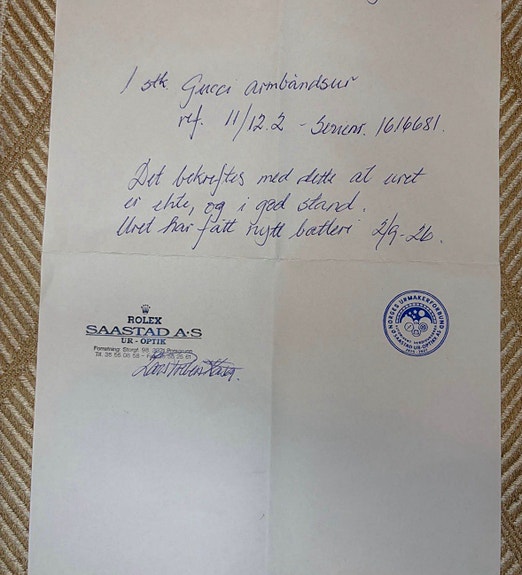 1 stk Gucci armbåndsur
ref. 11/12.2 - Serienr. 1616681.
Det bekreftes med dette at uret
er ekte, og i god stand.
Uret har fått nytt batteri 2/9-26.
ROLEX
SAASTAD A·S
UR - OPTIK
Forretning: Storgt.
Tlf. 35 55 06 58 -
NORGES URMAKERFORBUND
SAASTAD UR-OPTIKK AS